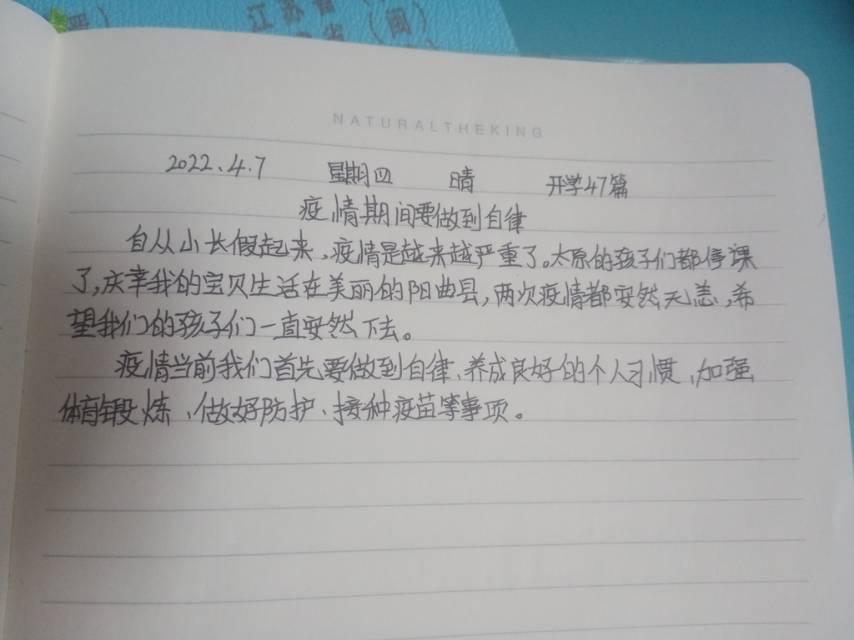 江苏省
（闽）
NATURALTHEKING
2022.4.7 星期四 晴 开学47篇
疫情期间要做到自律
自从小长假起来，疫情是越来越严重了。太原的孩子们都停课
了，庆幸我的宝贝生活在美丽的阳曲县，两次疫情都安然无恙，希
望我们的孩子们一直安然下去。
疫情当前我们首先要做到自律、养成良好的个人习惯，加强
体育锻炼、做好防护、接种疫苗等事项。